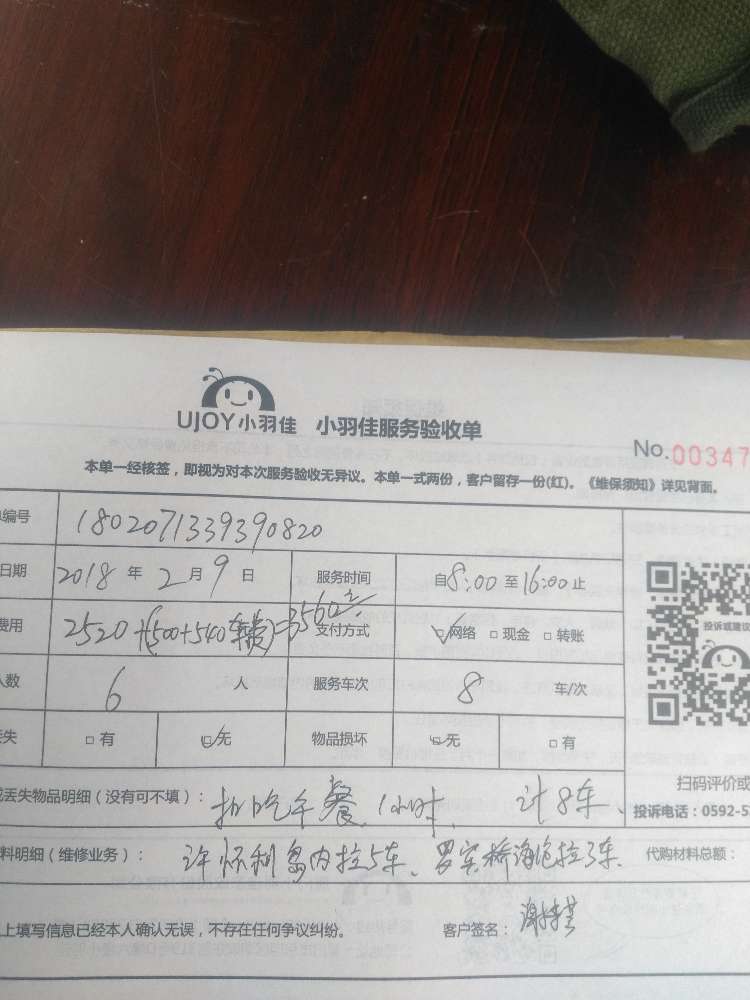 UJOY小羽佳 小羽佳服务验收单
No.00347
本单一经核签，即视为对本次服务验收无异议。本单一式两份，客户留存一份(红)。《维保须知》详见背面。
编号 1802071339390820
日期 2018 年 2 月 9 日 服务时间 自8:00至16:00止
费用 2520+(500+540车费)=3560元 支付方式 ☑网络 □现金 □转账
人数 6 人 服务车次 8 车/次
丢失 □有 ☑无 物品损坏 ☑无 □有
投诉或建议
扫码评价或
投诉电话：0592-5
丢失物品明细（没有可不填）： 扣吃午餐1小时, 计8车
料明细（维修业务）： 许怀利岛内拉5车、罗宾桥海沧拉3车 代购材料总额：
上填写信息已经本人确认无误，不存在任何争议纠纷。 客户签名：